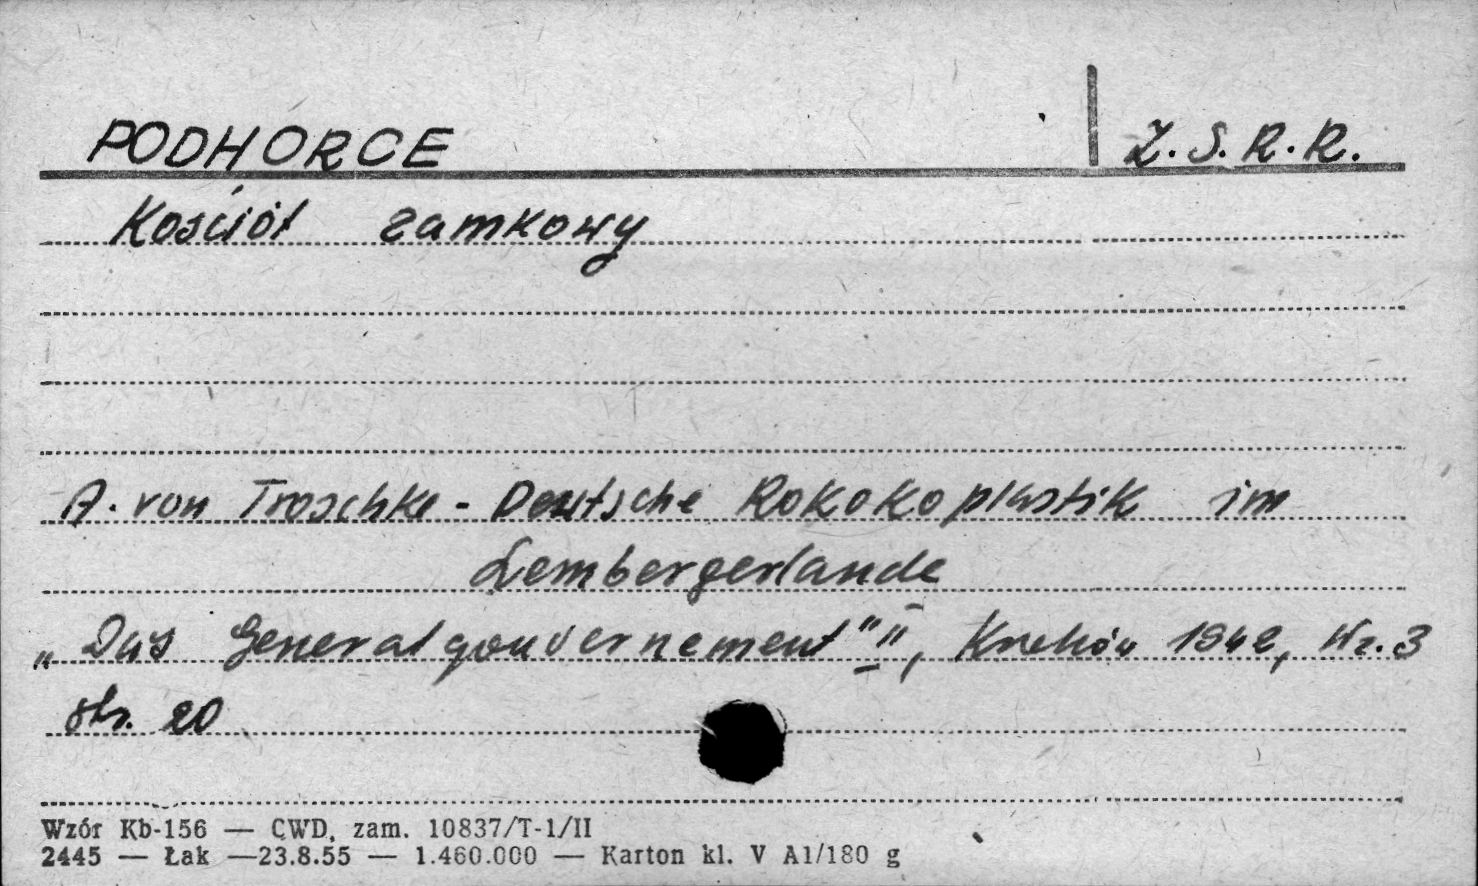 PODHORCE Z.S.R.R.
Kościół zamkowy
A. von Troschke - Deutsche Rokokoplastik im
Lembergerlande
„Das Generalgouvernement" II, Kraków 1942, Nr. 3
str. 20
Wzór Kb-156 — CWD, zam. 10837/T-1/II
2445 — Łak —23.8.55 — 1.460.000 — Karton kl. V A1/180 g